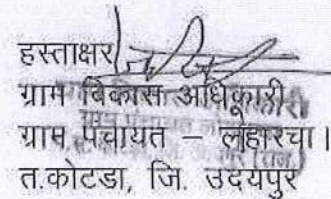 हस्ताक्षर
ग्राम विकास अधिकारी
ग्राम पंचायत – लुहारचा।
त.कोटडा, जि. उदयपुर